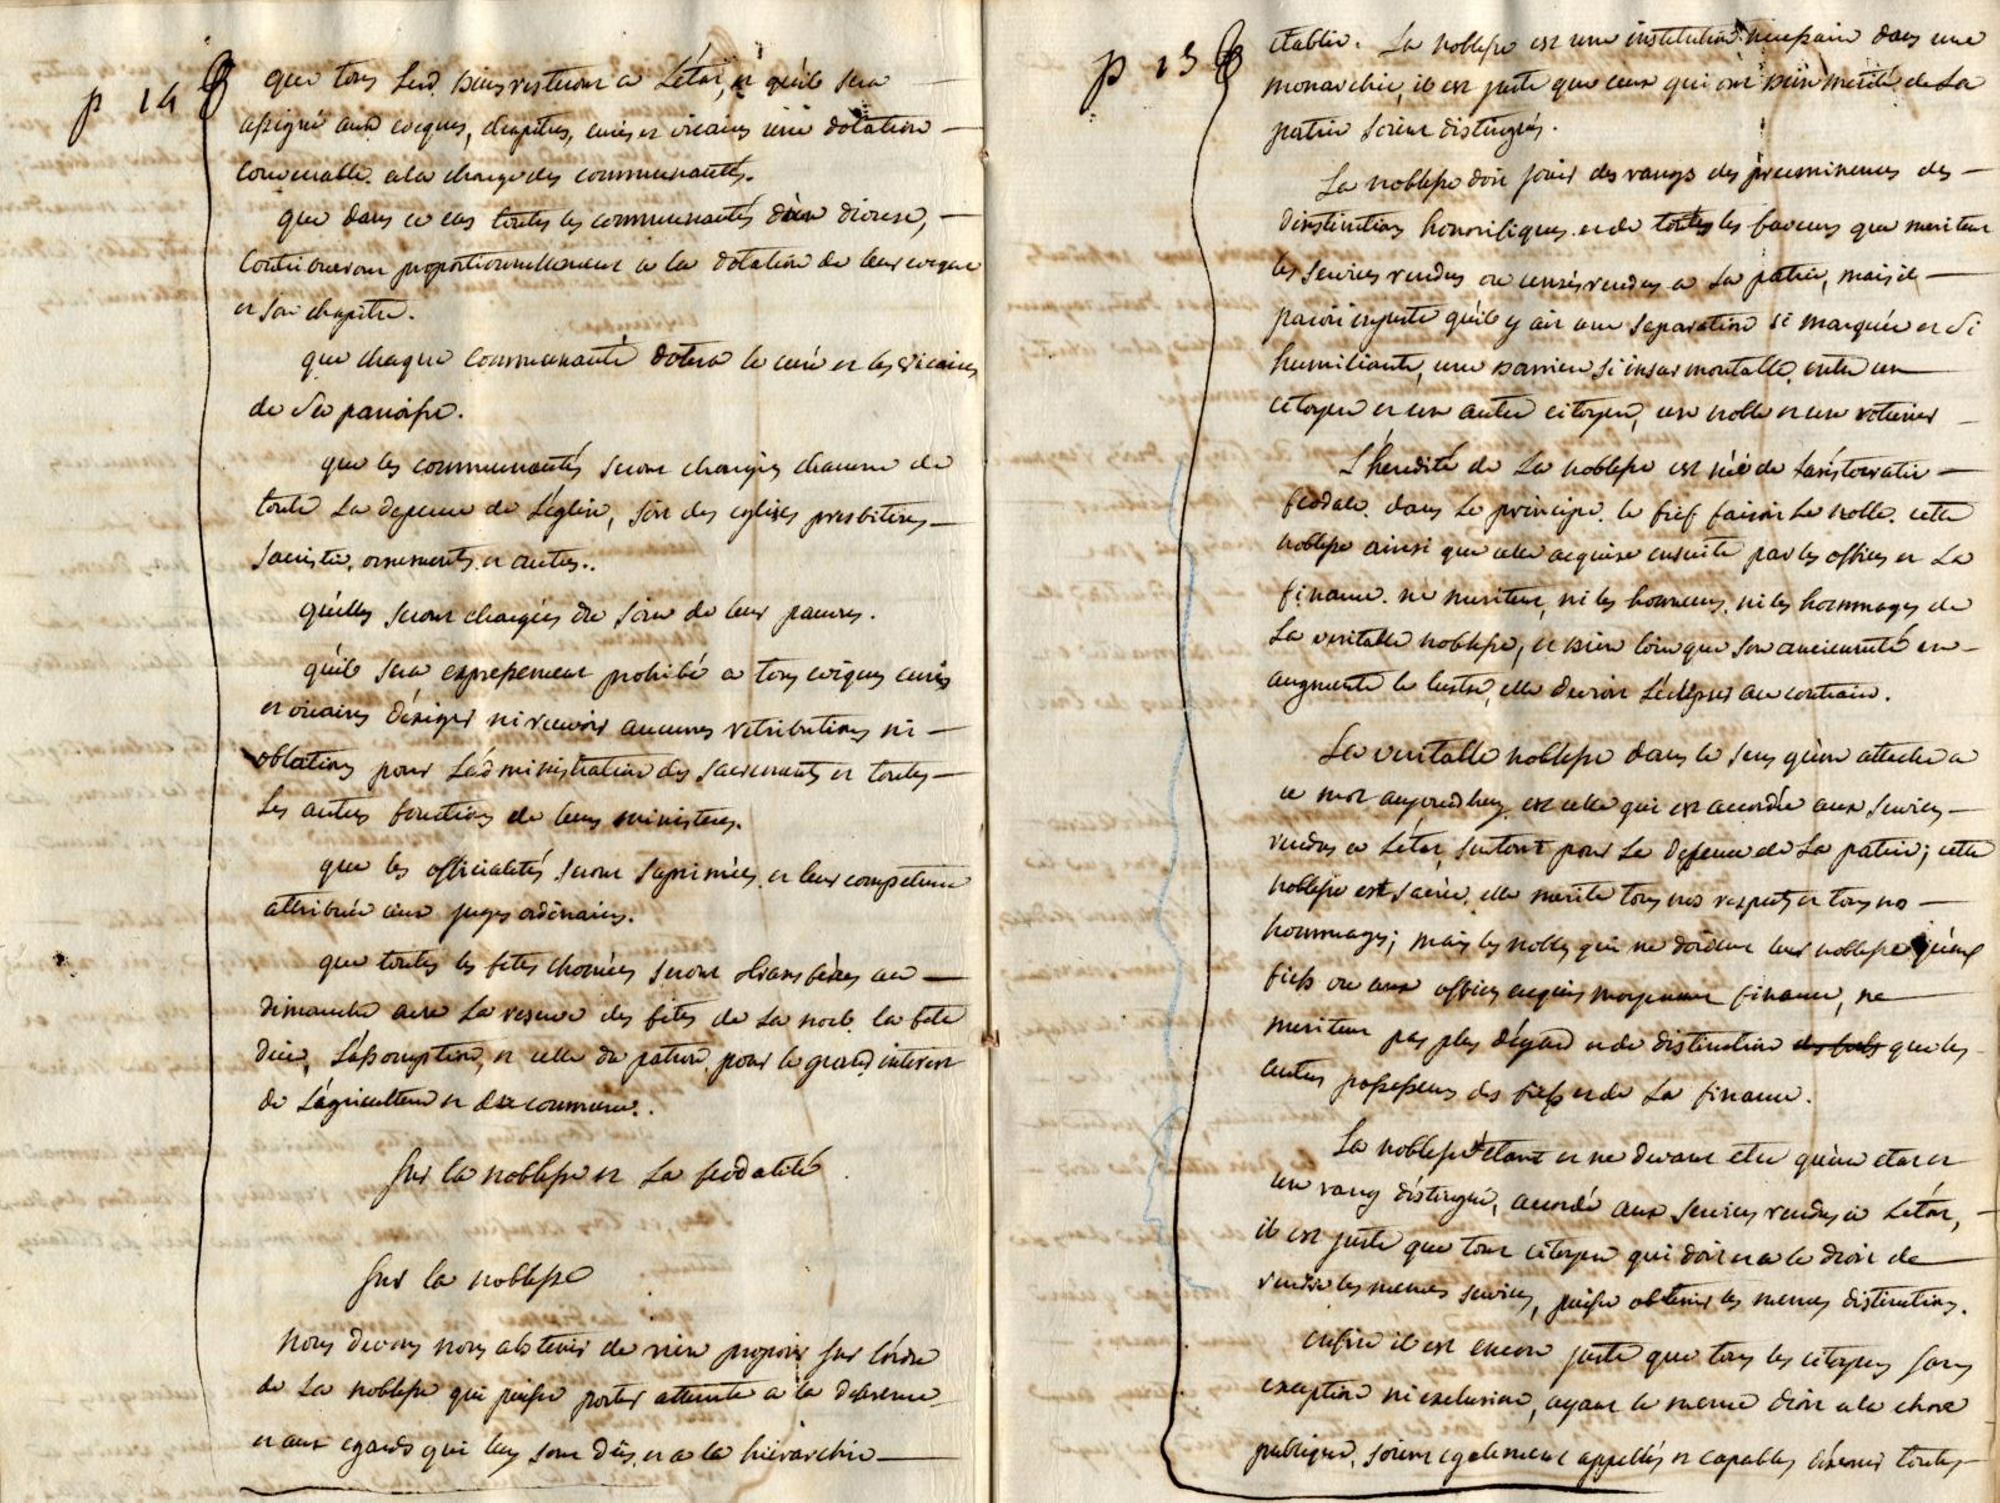 p 14
que tous leurs biens resteront a L'état, et qu'il sera
assigné aux eveques, chapitres, curés et vicaires une dotation
convenable. a la charge des communautés.
que dans ce cas toutes les communautés d'un diocese,
contribueront proportionnellement a la dotation de leur eveque
et son chapitre.
que chaque communauté dotera le curé et les vicaires
de sa paroisse.
que les communautés seront chargées chacune de
toute La depense de L'église, soit des eglises presbiteres
sacristie, ornements et autres..
qu'elles seront chargées du soin de leurs pauvres.
qu'il sera expressement prohibé a tous eveques curés
et vicaires d'exiger ni recevoir aucunes retributions ni
oblations pour L'administration des sacrements et toutes
Les autres fonctions de leurs ministeres.
que les officialités seront suprimées et leur competence
attribuée aux juges ordinaires.
que toutes les fetes chomées seront transferées au
dimanche avec La reserve des fetes de La noel. la fete
dieu, L'assomption, et celle du patron. pour le grand interest
de L'agriculture et du commerce.
Sur la noblesse et La feodalité
Sur la noblesse
Nous devons nous abstenir de rien proposer sur l'ordre
de La noblesse qui puisse porter atteinte a la deference
et aux egards qui luy sont dûs, et a la hierarchie
p 15
etablie. La noblesse est une institution necessaire dans une
monarchie, il est juste que ceux qui ont bien merité de La
patrie soient distingués.
La noblesse doit jouir des rangs des preeminences des
distinctions honorifiques et de toutes les faveurs que meritent
les services rendus ou censés rendus a La patrie, mais il
paroit injuste qu'il y ait une separation si marquée et si
humiliante, une barriere si insurmontable, entre un
citoyen et un autre citoyen, un noble et un roturier
L'heredité de La noblesse est née de L'aristocratie
feodale. dans Le principe. le fief faisoit Le noble. cette
noblesse ainsi que celle acquise ensuite par les offices et La
finance. ne meritent, ni les honneurs, ni les hommages de
La veritable noblesse, et bien loin que son ancienneté en
augmente le lustre, elle devroit L'éclipser au contraire.
La veritable noblesse dans le sens qu'on attache a
ce mot aujourdhuy est celle qui est accordée aux services
rendus a L'état, surtout pour La defence de La patrie; cette
noblesse est sacrée, elle merite tous nos respects et tous nos
hommages; mais les nobles qui ne doivent leur noblesse qu'aux
fiefs ou aux offices acquis moyennant finance, ne
meritent pas plus d'égard et de distinction que les
autres possesseurs des fiefs et de La finance.
La noblesse étant et ne devant etre qu'un etat et
un rang distingué, accordé aux services rendus a L'état,
il est juste que tout citoyen qui doit et a le droit de
rendre les memes services, puisse obtenir les memes distinctions.
enfin il est encore juste que tous les citoyens sans
exception ni exclusion, ayant le meme droit a la chose
publique, soient egalement appellés et capables d'exercer toutes